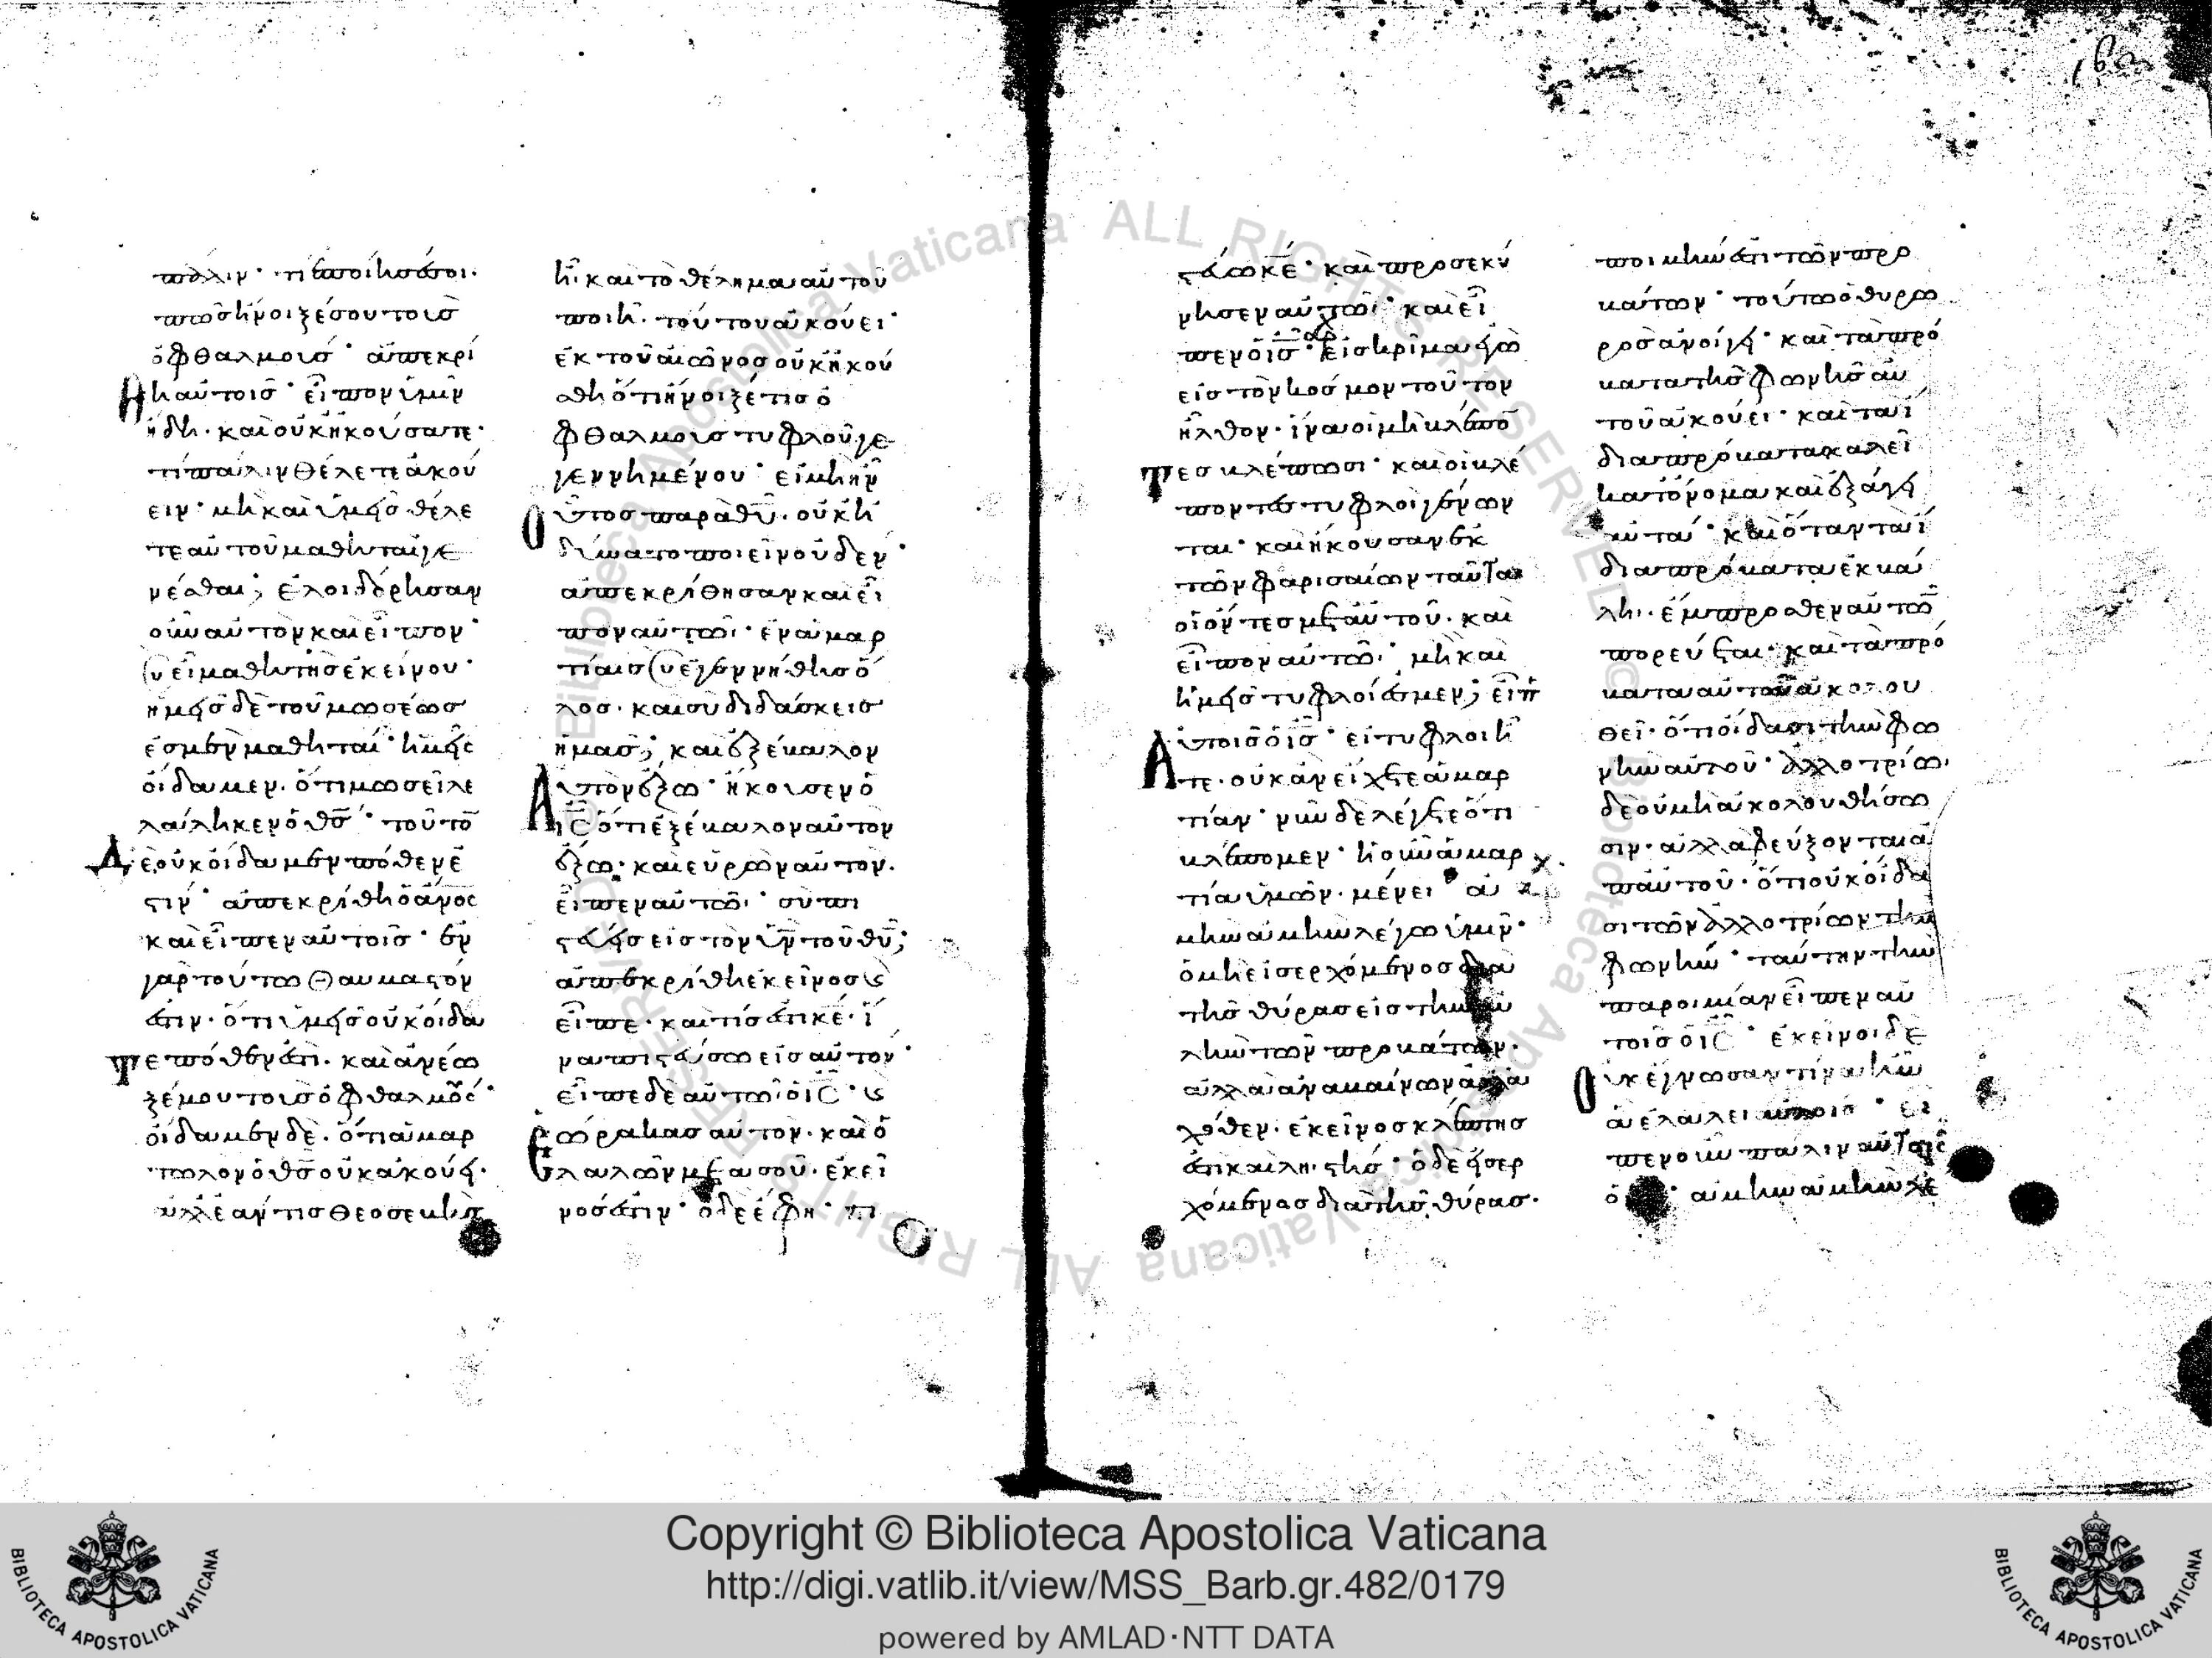 πάλιν· τί ἐποίησέ σοι·
πῶς ἤνοιξέ σου τοὺς
ὀφθαλμούς· ἀπεκρί
θη αὐτοῖς· εἶπον ὑμῖν
ἤδη· καὶ οὐκ ἠκούσατε·
τί πάλιν θέλετε ἀκού
ειν· μὴ καὶ ὑμεῖς θέλε
τε αὐτοῦ μαθηταὶ γε
νέσθαι; ἐλοιδόρησαν
οὖν αὐτὸν καὶ εἶπον·
σὺ εἶ μαθητὴς ἐκείνου·
ἡμεῖς δὲ τοῦ μωσέως
ἐσμὲν μαθηταί· ἡμεῖς
οἴδαμεν· ὅτι μωσεῖ λε
λάληκεν ὁ θς· τοῦτο
δὲ οὐκ οἴδαμεν πόθεν ἐ
στίν· ἀπεκρίθη ὁ ἄνος
καὶ εἶπεν αὐτοῖς· ἐν
γὰρ τούτω θαυμαστόν
ἐστιν· ὅτι ὑμεῖς οὐκ οἴδα
τε πόθεν ἐστί· καὶ ἀνέω
ξέ μου τοὺς ὀφθαλμούς·
οἴδαμεν δὲ· ὅτι ἁμαρ
τωλὸν ὁ θς οὐκ ἀκούει·
ἀλλ' ἐάν τις θεοσεβὴς
ἦ· καὶ τὸ θέλημα αὐτοῦ
ποιῆ· τούτου ἀκούει·
ἐκ τοῦ αἰῶνος οὐκ ἠκού
σθη ὅτι ἤνοιξέ τις ὀ
φθαλμοὺς τυφλοῦ γε
γεννημένου· εἰ μὴ ἦν
οὗτος παρὰ θυ· οὐκ ἠ
δύνατο ποιεῖν οὐδέν·
ἀπεκρίθησαν καὶ εἶ
πον αὐτῶ· ἐν ἁμαρ
τίαις σὺ ἐγεννήθης ὅ
λος· καὶ σὺ διδάσκεις
ἡμᾶς; καὶ ἐξέβαλον
αὐτὸν ἔξω· ἤκουσεν ὁ
ις ὅτι ἐξέβαλον αὐτὸν
ἔξω· καὶ εὑρὼν αὐτὸν·
εἶπεν αὐτῶ· σὺ πι
στεύεις εἰς τὸν υν τοῦ θυ;
ἀπεκρίθη ἐκεῖνος κ
εἶπε· καὶ τίς ἐστι κε· ἵ
να πιστεύσω εἰς αὐτόν·
εἶπε δὲ αὐτῶ ὁ ις· κ
ἑώρακας αὐτὸν· καὶ ὁ
λαλῶν μετὰ σοῦ· ἐκεῖ
νός ἐστιν· ὁ δὲ ἔφη· πι
στεύω κε· καὶ προσεκύ
νησεν αὐτῶ· καὶ εἶ
πεν ὁ ις· εἰς κρίμα ἐγὼ
εἰς τὸν κόσμον τοῦτον
ἦλθον· ἵνα οἱ μὴ βλέπο
τες βλέπωσι· καὶ οἱ βλέ
ποντες τυφλοὶ γένων
ται· καὶ ἤκουσαν ἐκ
τῶν φαρισαίων ταῦτα
οἱ ὄντες μετ' αὐτοῦ· καὶ
εἶπον αὐτῶ· μὴ καὶ
ἡμεῖς τυφλοί ἐσμεν; εἶπ
αὐτοῖς ὁ ις· εἰ τυφλοὶ ἦ
τε· οὐκ ἂν εἴχετε ἁμαρ
τίαν· νῦν δὲ λέγετε ὅτι
βλέπομεν· ἡ οὖν ἁμαρ
τία ὑμῶν· μένει· ἀ
μὴν ἀμὴν λέγω ὑμῖν·
ὁ μὴ εἰσερχόμενος διὰ
τῆς θύρας εἰς τὴν αὐ
λὴν τῶν προβάτων·
ἀλλὰ ἀναβαίνων ἀλλα
χόθεν· ἐκεῖνος κλέπτης
ἐστὶ καὶ ληστής· ὁ δὲ εἰσερ
χόμενος διὰ τῆς θύρας·
ποιμήν ἐστι τῶν προ
βάτων· τούτω ὁ θυρω
ρὸς ἀνοίγει· καὶ τὰ πρό
βατα τῆς φωνῆς αὐ
τοῦ ἀκούει· καὶ τὰ ἴ
δια πρόβατα καλεῖ
κατ' ὄνομα καὶ ἐξάγει
αὐτά· καὶ ὅταν τὰ ἴ
δια πρόβατα ἐκβά
λη· ἔμπροσθεν αὐτῶ
πορεύεται· καὶ τὰ πρό
βατα αὐτῶ ἀκολου
θεῖ· ὅτι οἴδασι τὴν φω
νὴν αὐτοῦ· ἀλλοτρίω
δὲ οὐ μὴ ἀκολουθήσω
σιν· ἀλλὰ φεύξονται ἀ
π' αὐτοῦ· ὅτι οὐκ οἴδα
σι τῶν ἀλλοτρίων τὴν
φωνήν· ταύτην τὴν
παροιμίαν εἶπεν αὐ
τοῖς ὁ ις· ἐκεῖνοι δὲ
οὐκ ἔγνωσαν τίνα ἦν
ἃ ἐλάλει αὐτοῖς· εἶ
πεν οὖν πάλιν αὐτοῖς
ὁ ἀμὴν ἀμὴν λέ
Copyright © Biblioteca Apostolica Vaticana
http://digi.vatlib.it/view/MSS_Barb.gr.482/0179
powered by AMLAD·NTT DATA
BIBLIOTECA APOSTOLICA VATICANA
BIBLIOTECA APOSTOLICA VATICANA